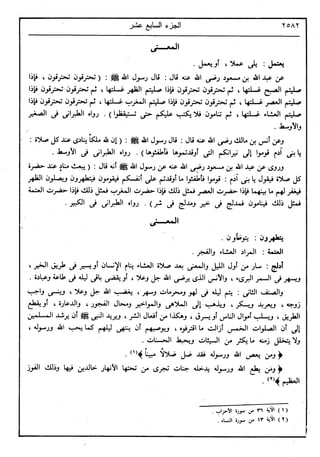 ٢٥٨٢ الجزء السابع عشر
المعــــنى
يعتمل : يلى عملا ، أو يعمل .
عن عبد الله بن مسعود رضى الله عنه قال : قال رسول الله ﷺ : ( تحترقون تحترقون ، فإذا
صليتم الصبح غسلتها ، ثم تحترقون تحترقون فإذا صليتم الظهر غسلتها ، ثم تحترقون تحترقون فإذا
صليتم العصر غسلتها ، ثم تحترقون تحترقون فإذا صليتم المغرب غسلتها ، ثم تحترقون تحترقون فإذا
صليتم العشاء غسلتها ، ثم تنامون فلا يكتب عليكم حتى تستيقظوا ) . رواه الطبرانى فى الصغير
والأوسط .
وعن أنس بن مالك رضى الله عنه قال : قال رسول الله ﷺ : ( إن لله ملكاً ينادى عند كل صلاة :
يا بنى آدم قوموا إلى نيرانكم التى أوقدتموها فأطفئوها ) . رواه الطبرانى فى الأوسط .
وروى عن عبد الله بن مسعود رضى الله عنه عن رسول الله ﷺ أنه قال : ( يبعث مناد عند حضرة
كل صلاة فيقول يا بنى آدم : قوموا فأطفئوا ما أوقدتم على أنفسكم فيقومون فيتطهرون ويصلون الظهر
فيغفر لهم ما بينهما فإذا حضرت العصر فمثل ذلك فإذا حضرت المغرب فمثل ذلك فإذا حضرت العتمة
فمثل ذلك فينامون فمدلج فى خير ومدلج فى شر ) . رواه الطبرانى فى الكبير .
المعــــنى
يتطهرون : يتوضأون .
العتمة : المراد العشاء والفجر .
أدلج : سار من أول الليل والمعنى بعد صلاة العشاء ينام الإنسان أو يسير فى طريق الخير ،
ويسهر فى السمر البرىء ، والأنس الذى يرضى الله جل وعلا ، أو يقضى باقى ليله فى طاعة وعبادة .
والصنف الثانى : يتم ليله فى لهو ومحرمات وسهر ، يغضب الله جل وعلا ، وينسى واجب
زوجه ، ويعربد ويسكر ، ويذهب إلى الملاهى والمواخير ومحال الفجور ، والدعارة ، أو يقطع
الطريق ، ويسلب أموال الناس أو يسرق ، وهكذا من أفعال الشر ، ويريد النبى ﷺ أن يرشد المسلمين
إلى أن الصلوات الخمس أزالت ما اقترفوه ، ويوصيهم أن ينتهى ليلهم كما يحب الله ورسوله ،
ولا يتخلل زمنه ما يكثر من السيئات ويحبط الحسنات .
﴿ ومن يعص الله ورسوله فقد ضل ضلالاً مبيناً ﴾(١) .
﴿ ومن يطع الله ورسوله يدخله جنات تجرى من تحتها الأنهار خالدين فيها وذلك الفوز
العظيم ﴾(٢) .
(١) الآية ٣٦ من سورة الأحزاب .
(٢) الآية ١٣ من سورة النساء .